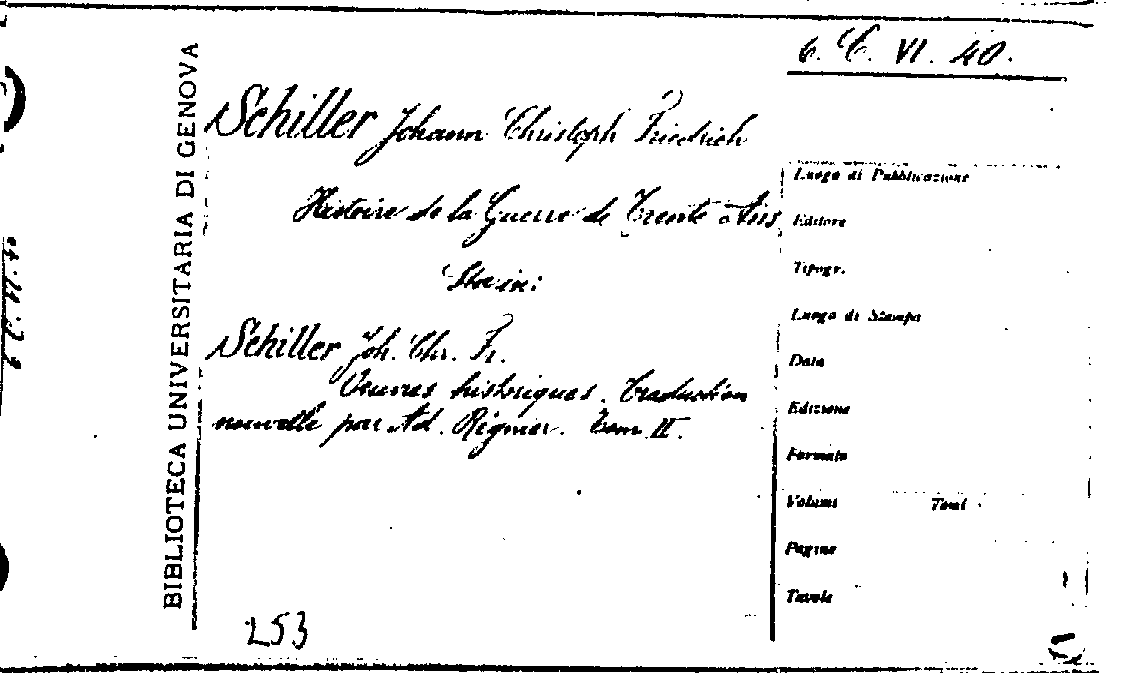 6. C. VI. 40.
BIBLIOTECA UNIVERSITARIA DI GENOVA
6 C. VI. 40
Schiller Johann Christoph Friedrich
Histoire de la Guerre de Trente Ans
Sta in:
Schiller Joh. Chr. Fr.
Oeuvres historiques. Traduction
nouvelle par Ad. Régnier. Tom. II.
253
Luogo di Pubblicazione
Editore
Tipogr.
Luogo di Stampa
Data
Edizione
Formato
Volumi Tomi
Pagine
Tavole